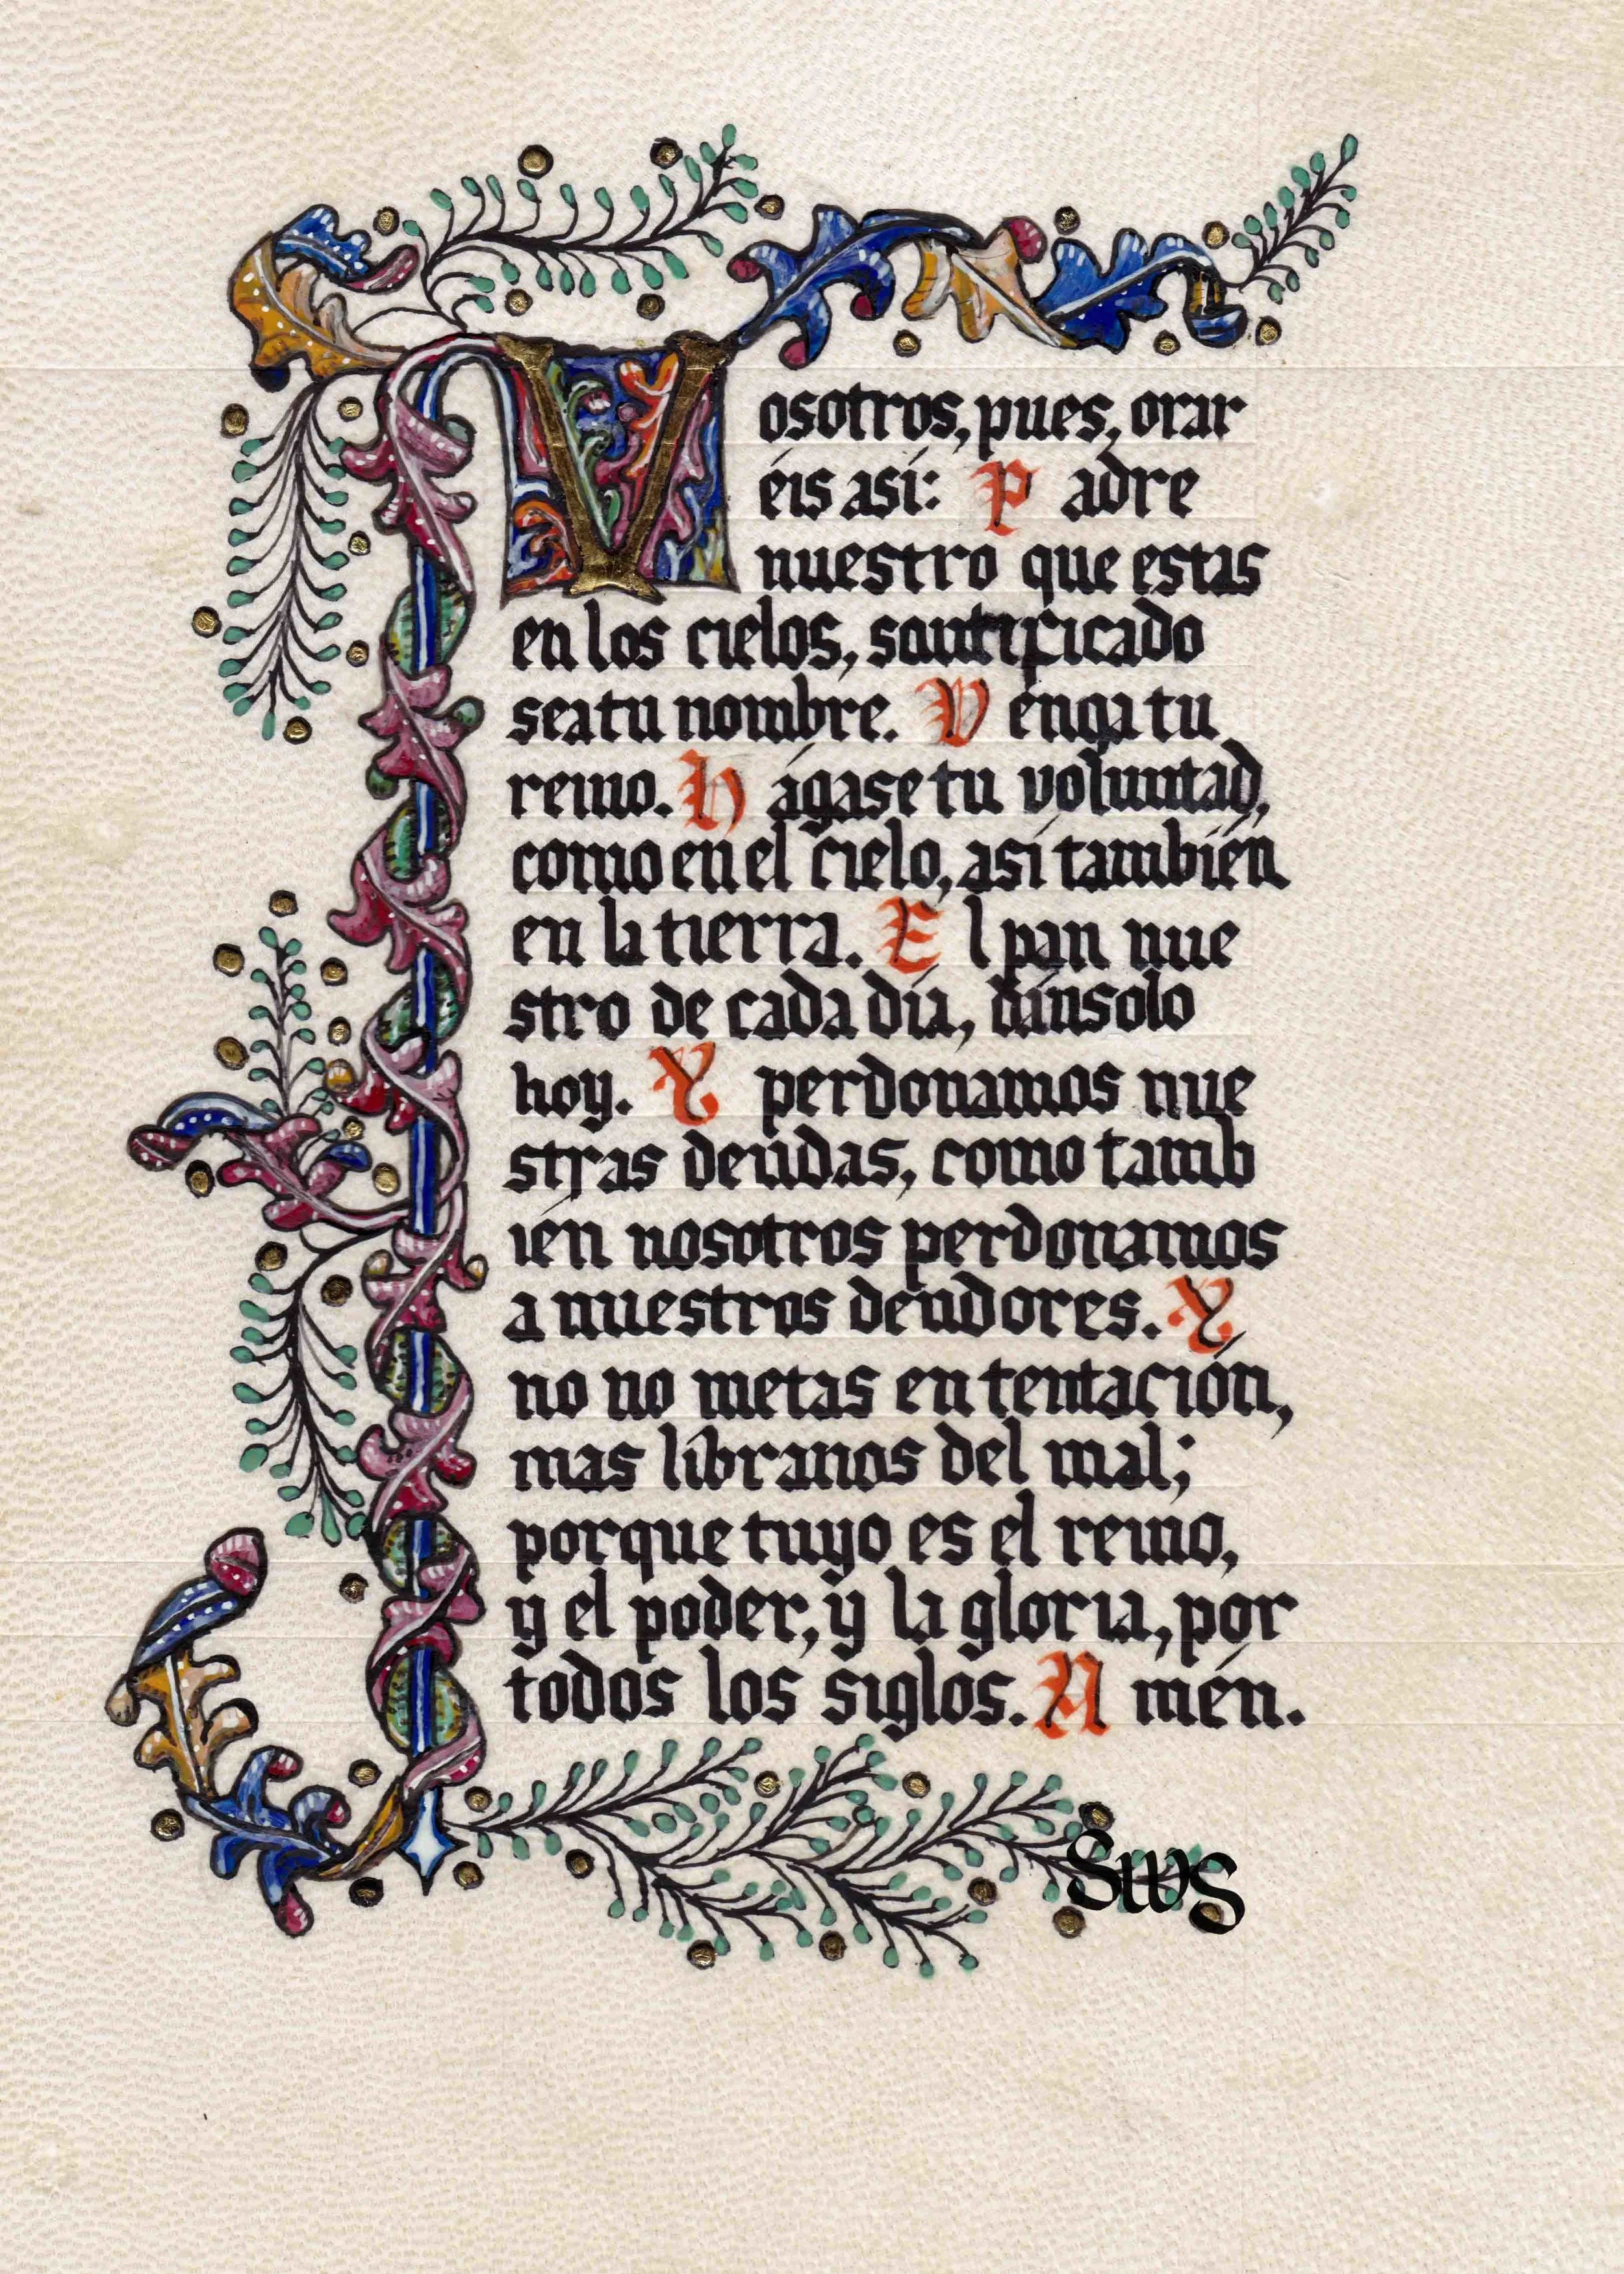 Vosotros, pues, orar
éis así: Padre
nuestro que estas
en los cielos, santificado
sea tu nombre. Venga tu
reino. Hágase tu voluntad,
como en el cielo, así también
en la tierra. El pan nue
stro de cada día, dínsolo
hoy. Y perdonamos nue
stras deudas, como tamb
ién nosotros perdonamos
a nuestros deudores. Y
no no metas en tentación,
mas líbranos del mal;
porque tuyo es el reino,
y el poder, y la gloria, por
todos los siglos. Amén.
SWS